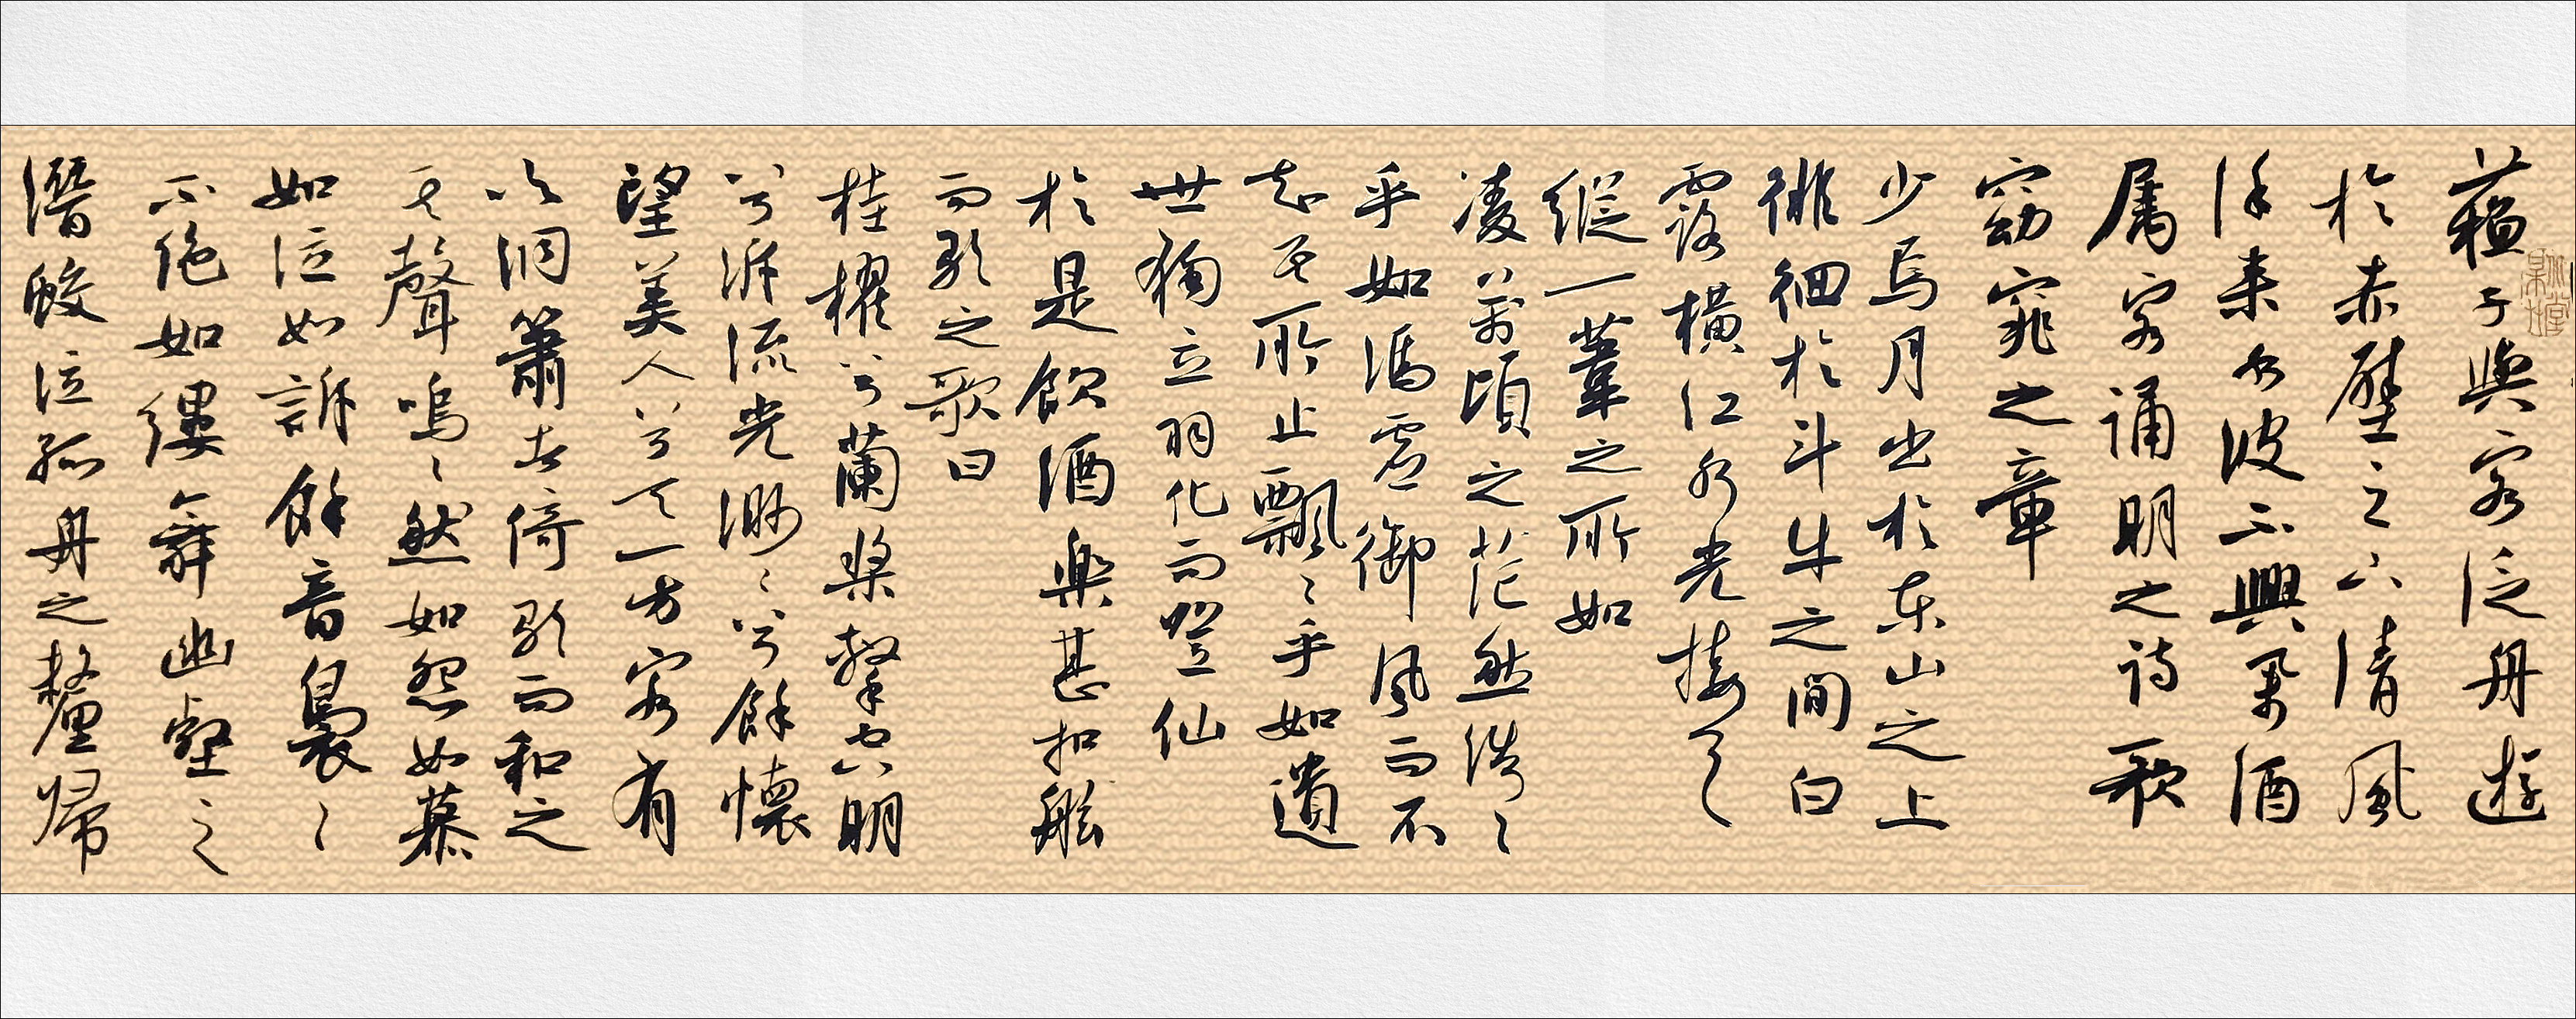 蘇子與客泛舟遊
於赤壁之下清風
徐來水波不興舉酒
属客誦明月之詩歌
窈窕之章
少焉月出於東山之上
徘徊於斗牛之間白
露橫江水光接天
縱一葦之所如
凌萬頃之茫然浩〻
乎如馮虛御風而不
知其所止飄〻乎如遺
世獨立羽化而登仙
於是飲酒樂甚扣舷
而歌之歌曰
桂櫂兮蘭槳擊空明
兮泝流光渺〻兮余懷
望美人兮天一方客有
吹洞簫者倚歌而和之
其聲嗚〻然如怨如慕
如泣如訴餘音裊〻
不絕如縷舞幽壑之
潛蛟泣孤舟之嫠婦